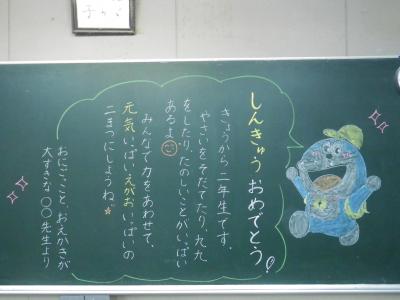 しんきゅう おめでとう!
きょうから二年生です。
やさいをそだてたり、九九
をしたり、たのしいことがいっぱい
あるよ
みんなで力をあわせて、
元気いっぱい、えがおいっぱいの
二年生にしようね
おにごっこと、おえかきが
大すきな〇〇先生より